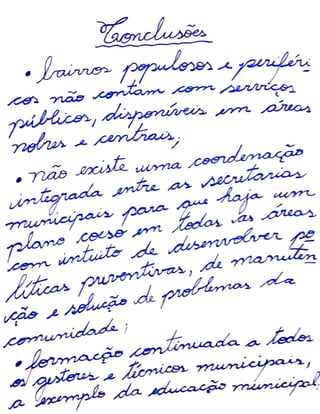 Conclusões
• bairros populosos e periféri
cos não contam com serviços
públicos, disponíveis em áreas
nobres e centrais;
• não existe uma coordenação
integrada entre as secretarias
municipais para que haja um
plano coeso em todas as áreas
com intuito de desenvolver po
líticas preventivas, de manuten
ção e solução de problemas da
comunidade;
• formação continuada a todos
os gestores e técnicos municipais,
a exemplo da educação municipal,